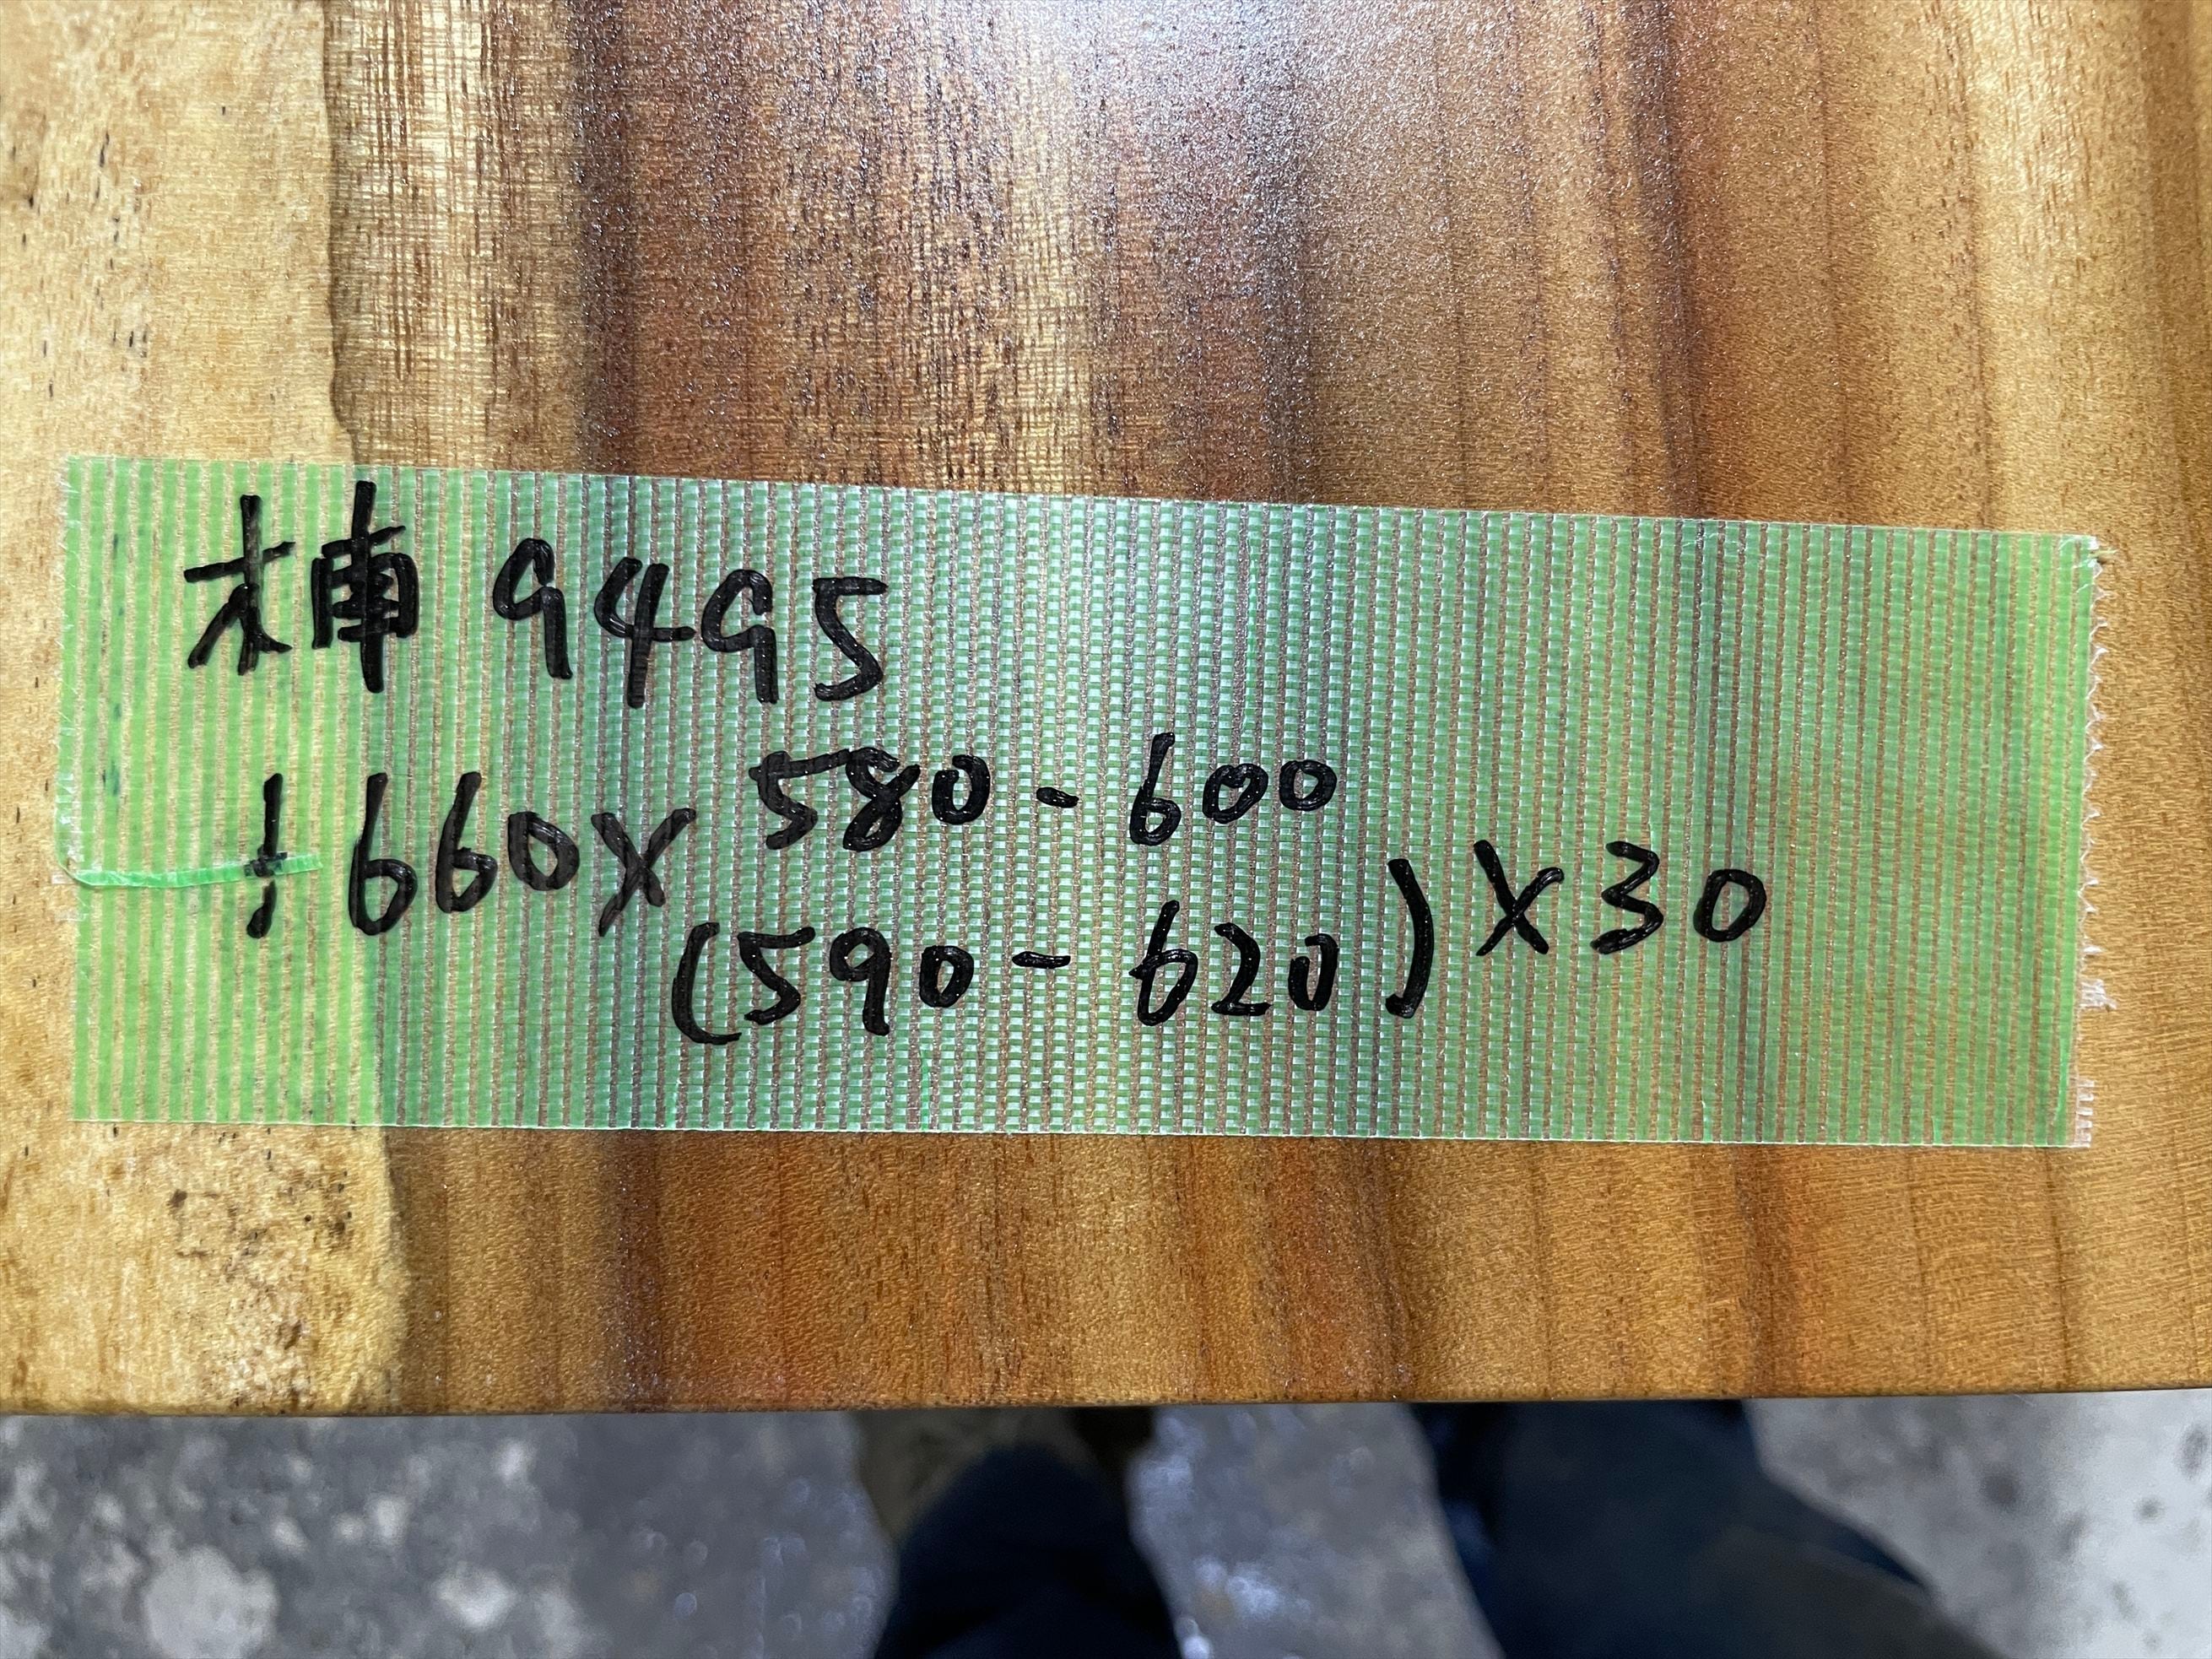 楠 9495
1660×580-600
(590-620)×30